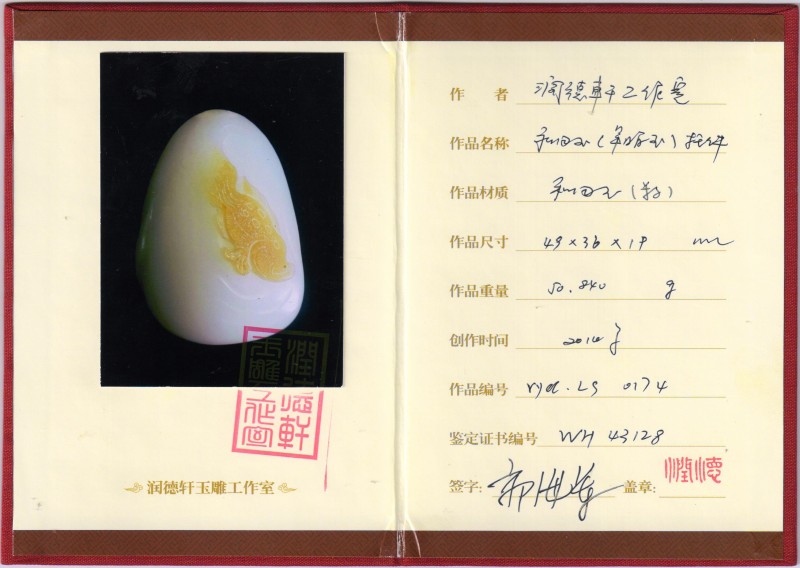 润德轩玉雕工作室
潤德軒
玉雕工作室
作 者 润德轩工作室
作品名称 和田玉( )挂件
作品材质 和田玉(籽)
作品尺寸 49×36×19 mm
作品重量 50.840 g
创作时间 2014年
作品编号 rydx.LS 0174
鉴定证书编号 WH 43128
签字: 盖章: 潤德